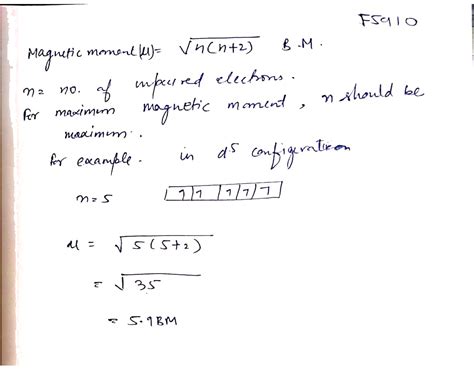 F5910
Magnetic moment (μ) = √n(n+2) B.M.
n = no. of unpaired electrons.
for maximum magnetic moment, n should be
maximum.
for example. in d5 configuration
n=5 1 1 1 1 1
μ = √5(5+2)
= √35
= 5.9BM